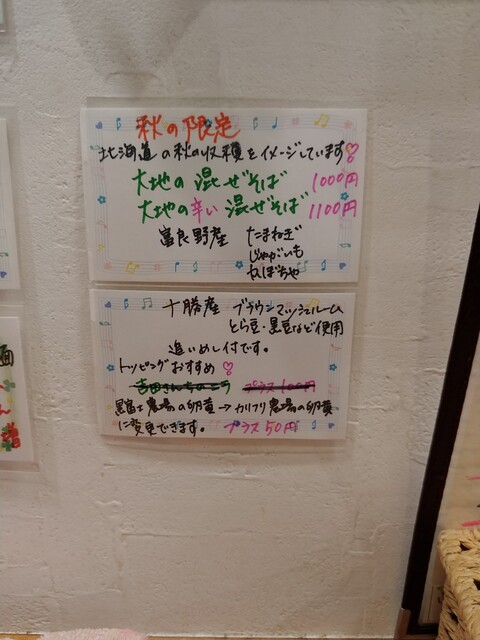 秋の限定
北海道の秋の収穫をイメージしています♡
大地の混ぜそば 1000円
大地の辛い混ぜそば 1100円
富良野産 たまねぎ
じゃがいも
かぼちゃ
十勝産 ブラウンマッシュルーム
とら豆・黒豆など使用
追いめし付です。
トッピングおすすめ♡
吉田さんちのニラ プラス100円
黒富士農場の卵黄→カリフリ農場の卵黄
に変更できます。 プラス50円